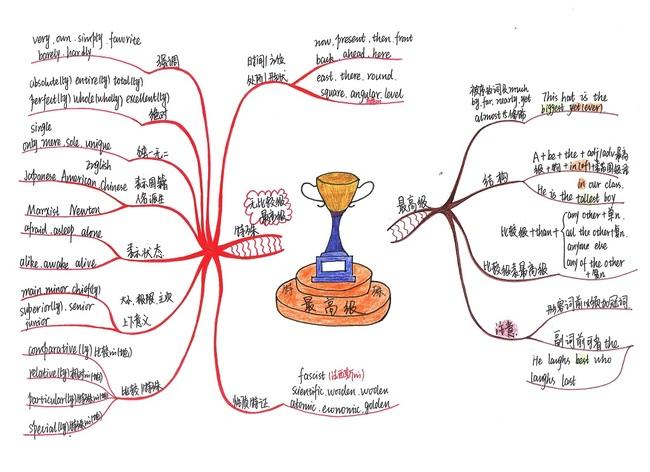 very . own . simply . favorite
barely . hardly
强调
absolute(ly) entire(ly) total(ly)
perfect(ly) whole(wholly) excellent(ly)
绝对
single
only . mere . sole . unique
独一无二
English
Japanese . American Chinese
表示国籍
人名派生
Marxist Newton
afraid . asleep alone
表示状态
alike . awake alive
main . minor . chief(ly)
superior(ly) . senior
junior
大小、极限 主次
上下意义
comparative(ly) 比较
relative(ly) 相对
particular(ly)
special(ly)
比较 特殊
时间 方位
处所 形状
now . present . then . front
back ahead . here
east . there . round .
square . angular . level
无比较级
最高级
特殊
fascist
scientific . wooden . woolen
atomic . economic . golden
特殊
最高级
最高级
被序动词及much
by far . nearly . yet
almost 等修饰
This hat is the
biggest yet/ever
结构
A + be + the + adj/adv 最高
in our class.
He is the tallest boy
比较级 + than +
any other + 单n.
all the other + 复n.
anyone else
any of the other
+ 复n
比较级表最高级
注意
形容词前必须加冠词
副词前可省 the
He laughs best who
laughs last